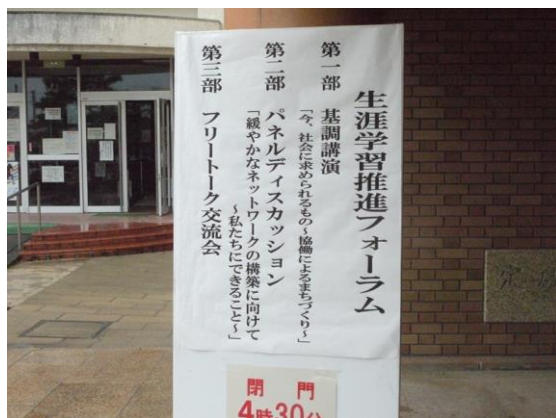 生涯学習推進フォーラム
第一部 基調講演
「今、社会に求められるもの~協働によるまちづくり~」
第二部 パネルディスカッション
「緩やかなネットワークの構築に向けて
~私たちにできること~」
第三部 フリートーク交流会
閉門
4時30分